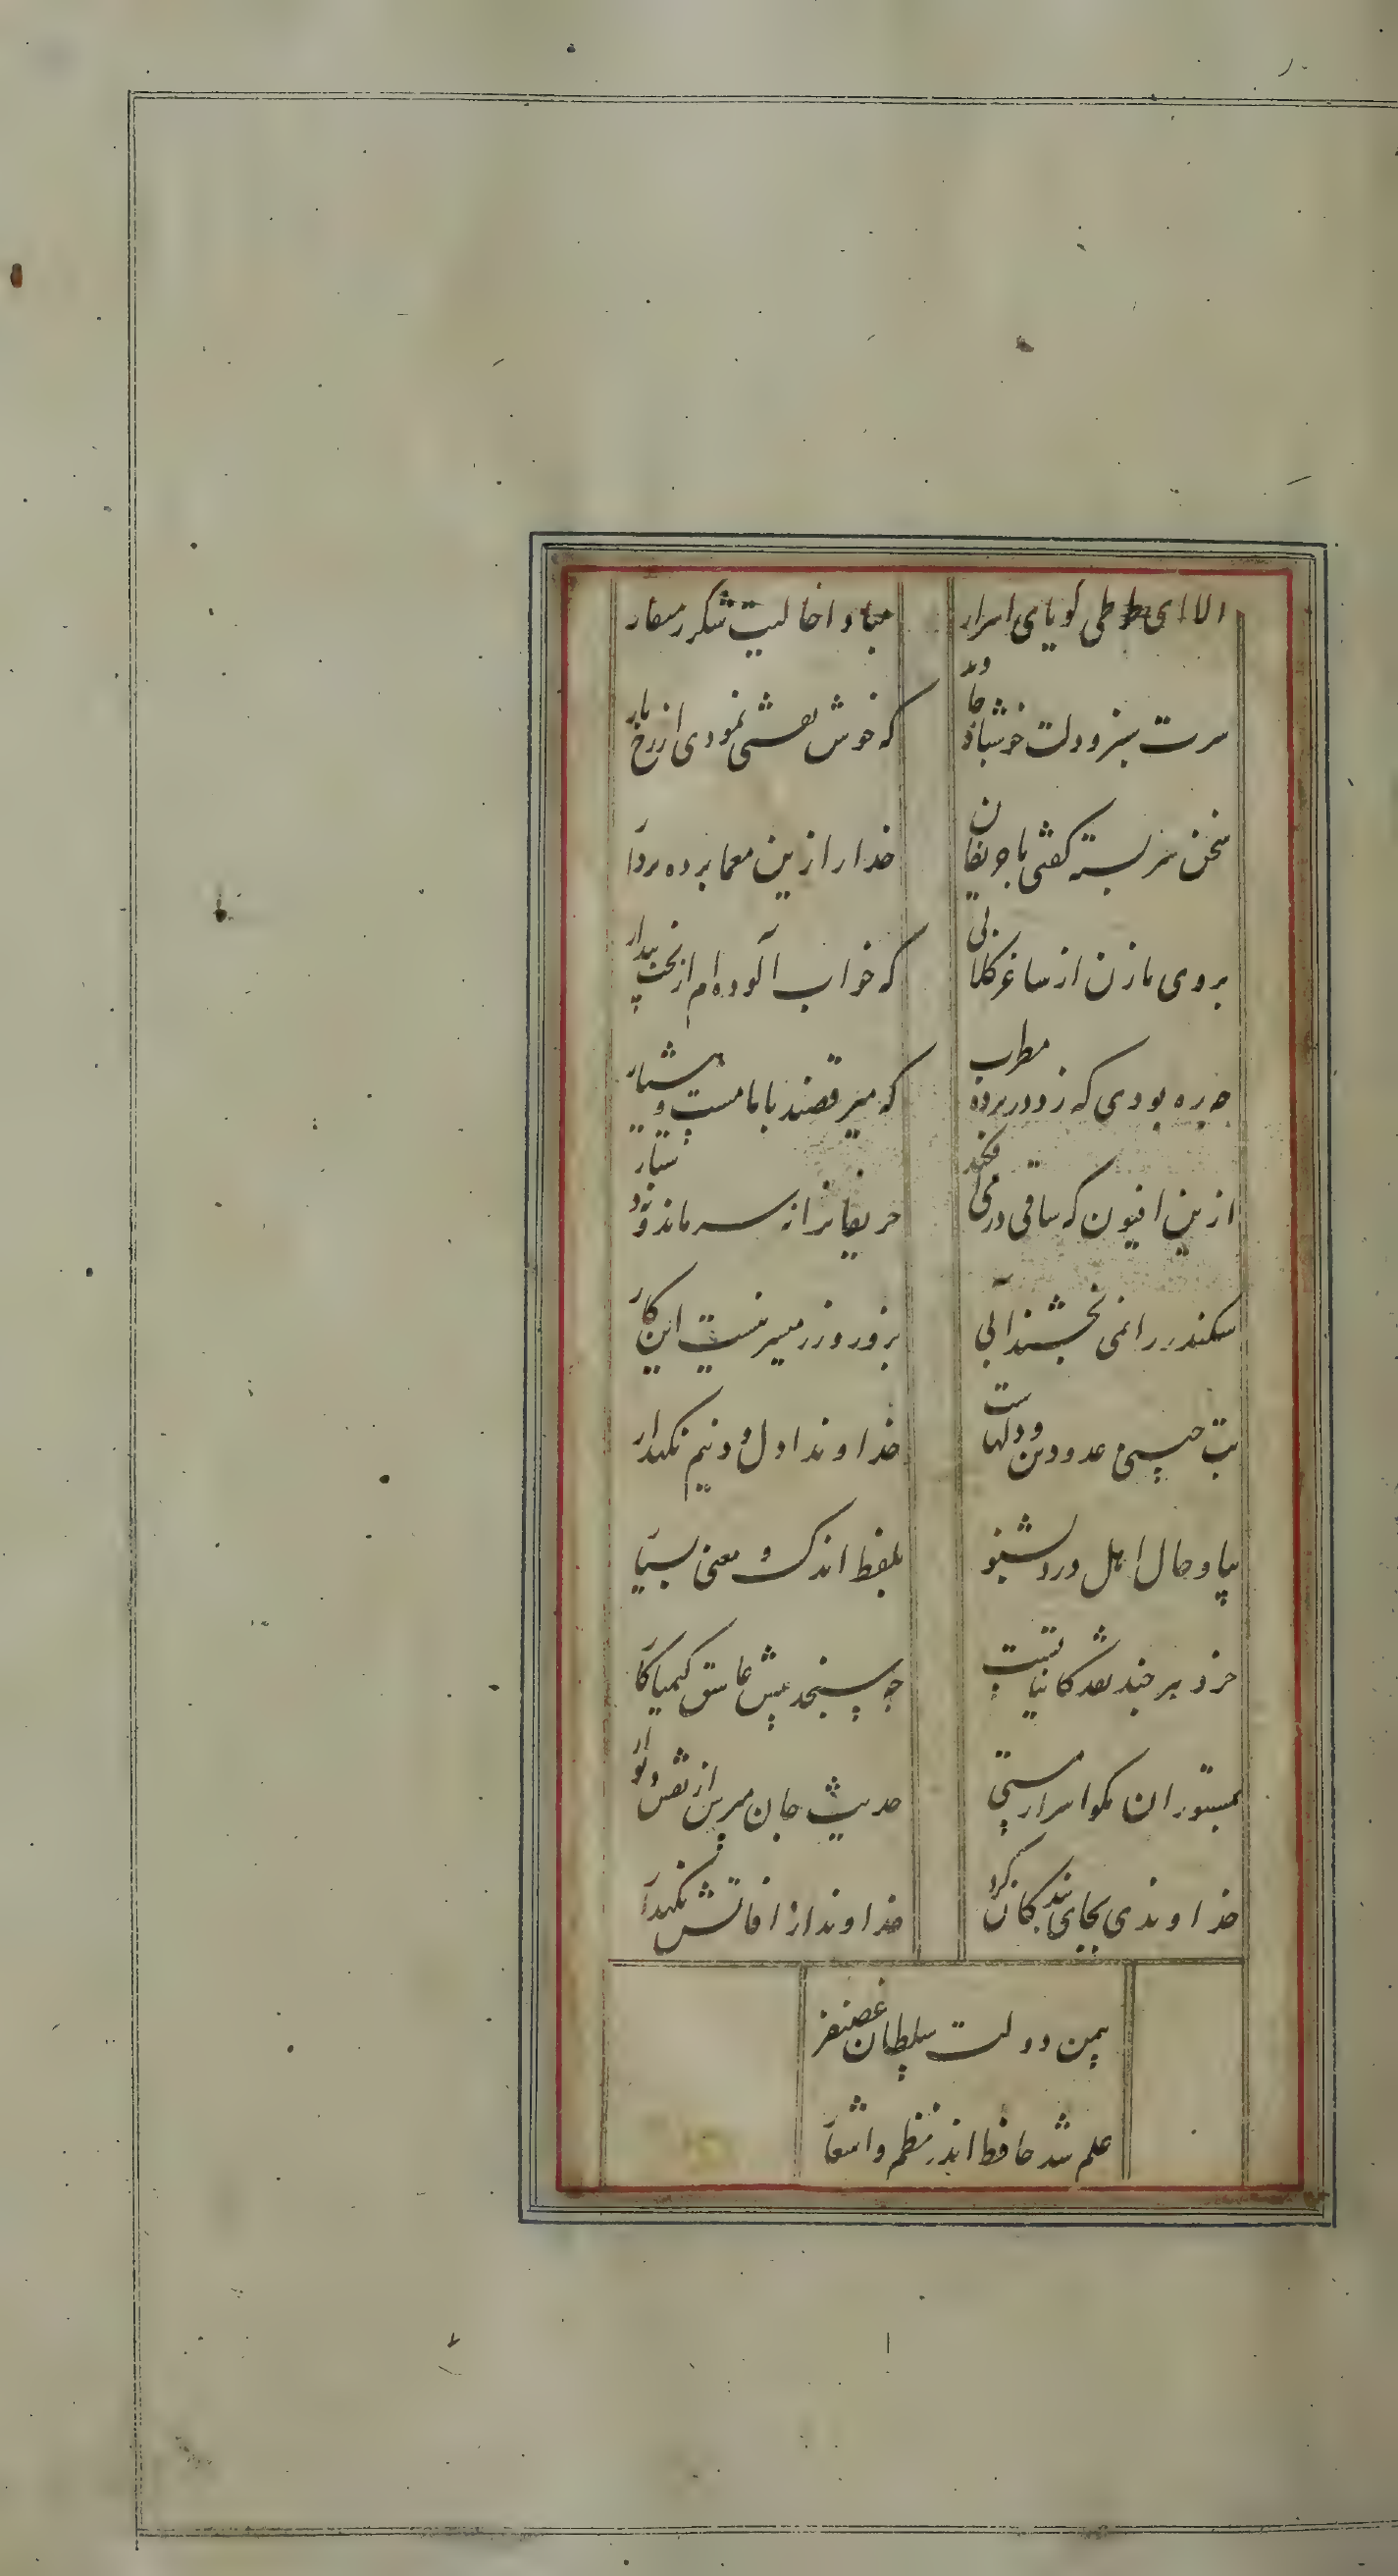 الا ای طوطی گویای اسرار
مبادا خالیت شکر ز منقار
سرت سبز و دلت خوش باد جاوید
که خوش نقشی نمودی از رخ یار
سخن سربسته گفتی با حریفان
خدا را زین معما پرده بردار
بروی ما زن از ساغر گلابی
که خواب آلوده ام از بخت بیدار
چه ره بود ی که زد در پرده مطرب
که میرقصند با ما مست و هشیار
ازین افیون که ساقی در می افکند
حریفانرا نه سر ماند و نه دستار
سکندر را نمی بخشند آبی
بزور و زر میسر نیست این کار
بت چینی عدو دین و دلهاست
خداوندا دل و دینم نگهدار
بیا و حال اهل درد بشنو
بلفظ اندک و معنی بسیار
خرد هر چند نقد کانیاتست
چه سنجد پیش عاشق کیمیا کار
بمستوران مگو اسرار مستی
حدیث جان مپرس از نقش دیوار
خداوندی بجای بندگان کرد
خداوندا از آفاتش نگهدار
بیمن دولت سلطان غضنفر
علم شد حافظ اندر نظم و اشعار